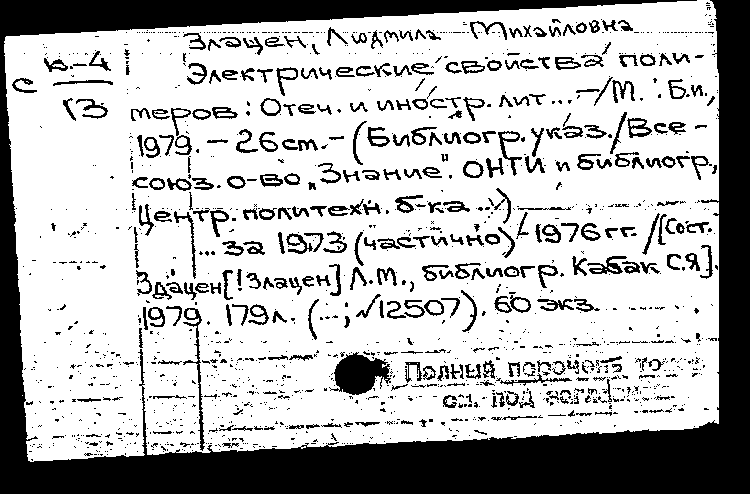 Злацен, Людмила Михайловна
с к-4
13
Электрические свойства поли-
меров: Отеч. и иностр. лит... -/М.: Б.и.,
1979. - 26 см. - (Библиогр. указ./Все-
союз. о-во „Знание". ОНТИ и библиогр,
Центр. политехн. б-ка ...)
... за 1973 (частично) - 1976 гг. /[Сост.
Здацен [! Злацен] Л.М., библиогр. Кабак С.Я].
1979. 179 л. (...; √12507). 60 экз.
Полный перечень то
см. под заглав